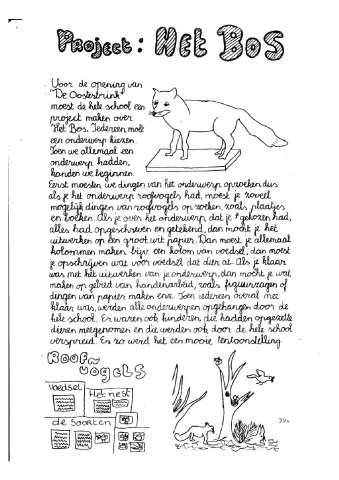 Project: Het Bos
Voor de opening van
"De Oosterbrink"
moest de hele school een
project maken over
Het Bos. Iedereen moest
een onderwerp kiezen.
Toen we allemaal een
onderwerp hadden,
konden we beginnen.
Eerst moesten we dingen van het onderwerp opzoeken dus
als je het onderwerp roofvogels had, moest je zoveel
mogelijk dingen van roofvogels op zoeken, zoals plaatjes
en boeken. Als je over het onderwerp dat je gekozen had,
alles had opgeschreven en getekend, dan mocht je het
uitwerken op een groot wit papier. Dan moest je allemaal
kolommen maken bijvr een kolom van voedsel, dan moest
je opschrijven wat voor voedsel dat dier at. Als je klaar
was met het uitwerken van je onderwerp, dan mocht je wat
maken op gebied van handenarbeid, zoals figuurzagen of
dingen van papier maken enz. Toen iedereen overal mee
klaar was, werden alle onderwerpen opgehangen door de
hele school. Er waren ook kinderen, die hadden opgezette
dieren meegenomen en die werden ook door de hele school
verspreid. En zo werd het een mooie tentoonstelling.
Roof
vogels
voedsel
Het nest
de soorten